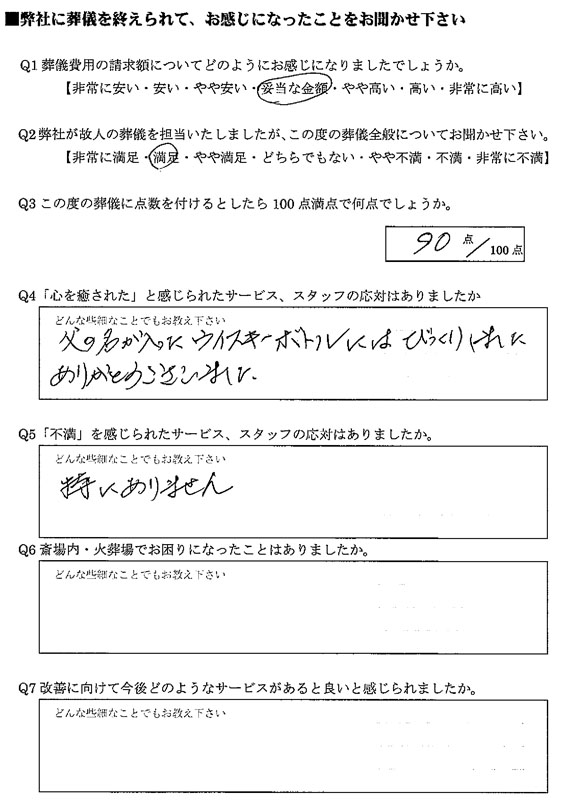 ■弊社に葬儀を終えられて、お感じになったことをお聞かせ下さい
Q1 葬儀費用の請求額についてどのようにお感じになりましたでしょうか。
【非常に安い・安い・やや安い・妥当な金額・やや高い・高い・非常に高い】
Q2 弊社が故人の葬儀を担当いたしましたが、この度の葬儀全般についてお聞かせ下さい。
【非常に満足・満足・やや満足・どちらでもない・やや不満・不満・非常に不満】
Q3 この度の葬儀に点数を付けるとしたら 100 点満点で何点でしょうか。
90 点/100 点
Q4 「心を癒された」と感じられたサービス、スタッフの応対はありましたか
どんな些細なことでもお教え下さい
父の名が入った ウイスキーボトルには びっくりしました
ありがとうございました.
Q5 「不満」を感じられたサービス、スタッフの応対はありましたか。
どんな些細なことでもお教え下さい
特にありません
Q6 斎場内・火葬場でお困りになったことはありましたか。
どんな些細なことでもお教え下さい
Q7 改善に向けて今後どのようなサービスがあると良いと感じられましたか。
どんな些細なことでもお教え下さい